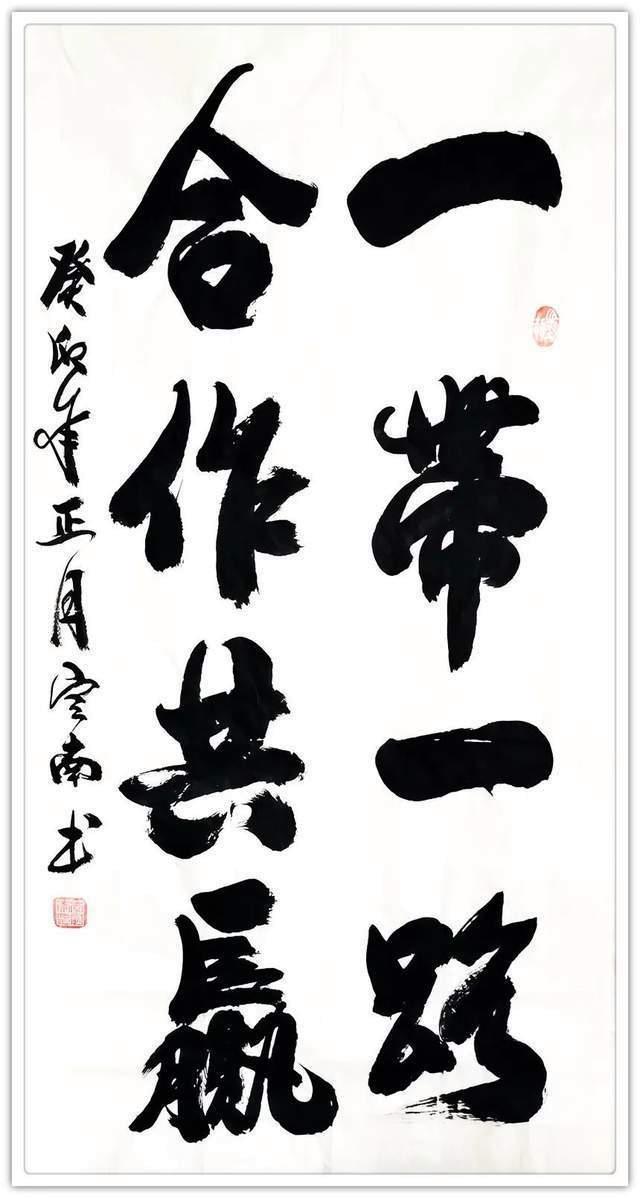 一带一路
合作共赢
癸卯年正月南书